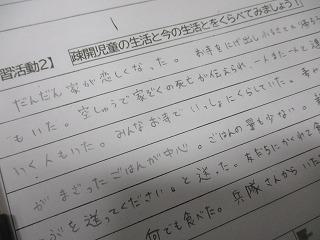 習活動2】 疎開児童の生活と今の生活とをくらべてみましょう！
だんだん家が恋しくなった。お寺をにげ出し小さな
もいた。空しゅうで家ぞくの死亡が伝えられ、一人また一人と
いく人もいた。みんなお寺でいっしょにくらしていた。
がまざったごはんが中心。ごはんの量も少ない。
を送ってください。と送った。友だちにかくれて食
何でも食べた。兵隊さんからいた